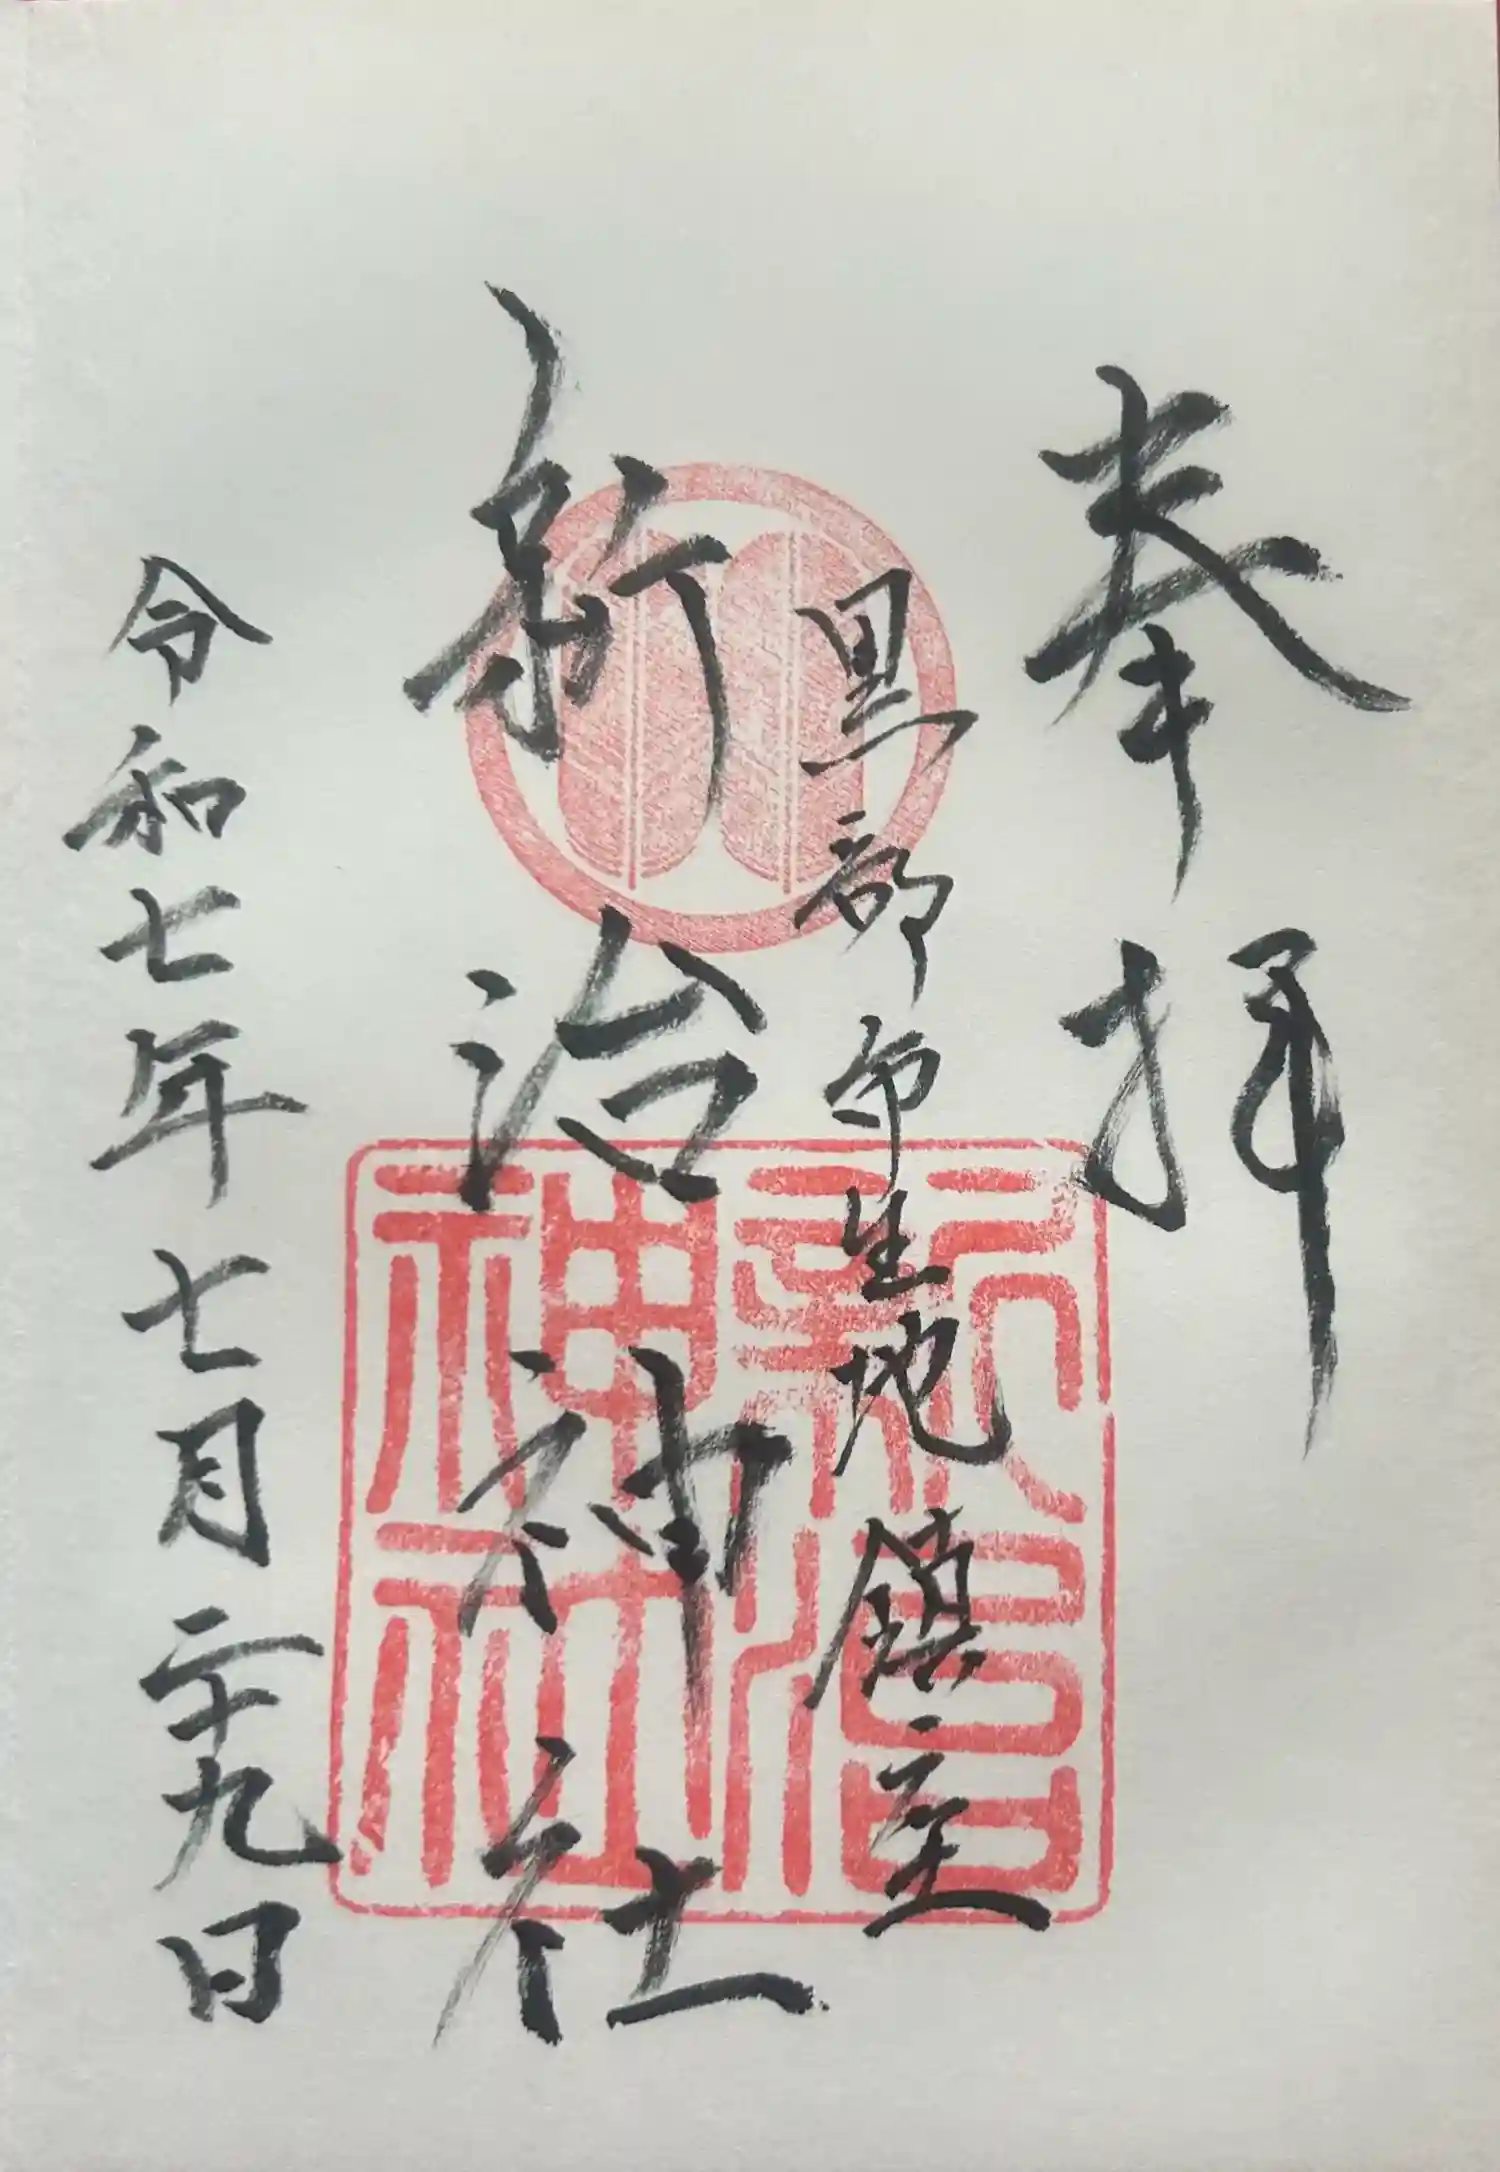 奉拝
黒部市生地鎮座
新治神社
新治神社
令和七年七月二十九日